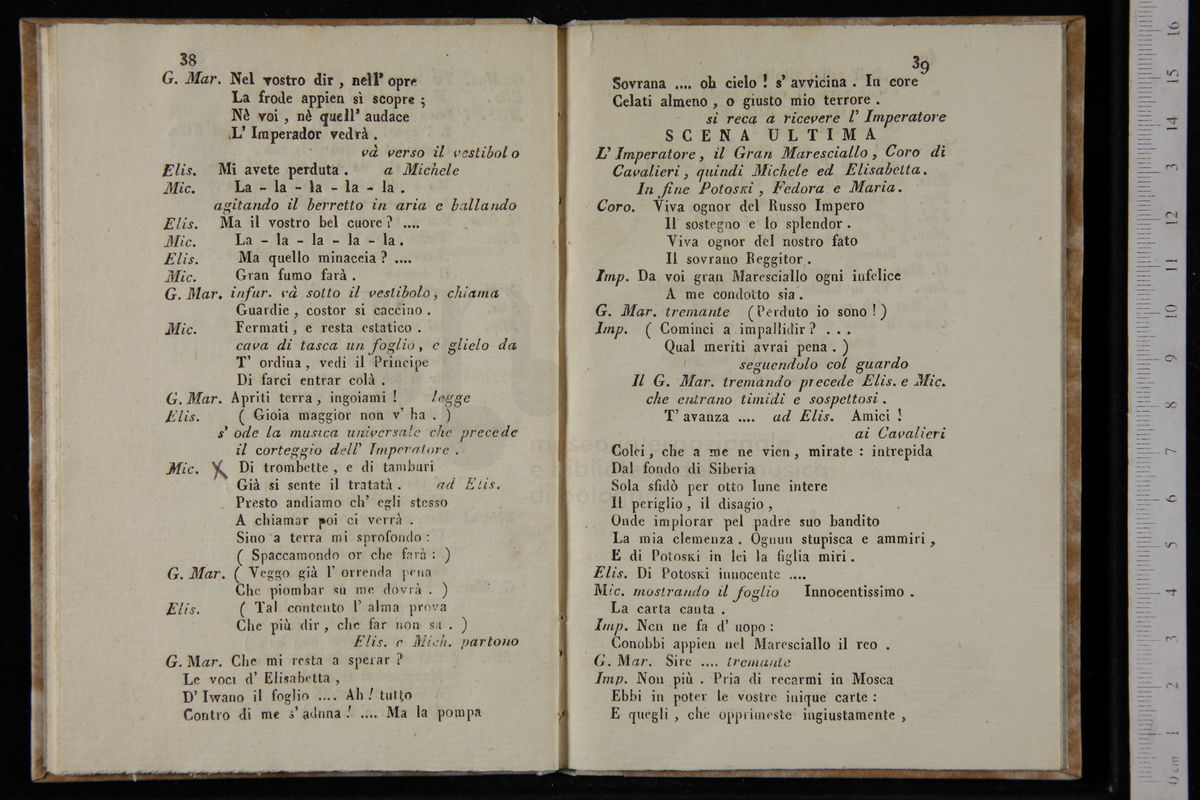 38
G. Mar. Nel vostro dir , nell' opre
La frode appien sì scopre ;
Nè voi , nè quell' audace
L' Imperador vedrà .
và verso il vestibolo
Elis. Mi avete perduta . a Michele
Mic. La - la - la - la - la .
agitando il berretto in aria e ballando
Elis. Ma il vostro bel cuore ? ....
Mic. La - la - la - la - la .
Elis. Ma quello minaccia ? ....
Mic. Gran fumo farà .
G. Mar. infur. và sotto il vestibolo, chiama
Guardie , costor si caccino .
Mic. Fermati , e resta estatico .
cava di tasca un foglio , e glielo da
T' ordina , vedi il Principe
Di farci entrar colà .
G. Mar. Apriti terra , ingoiami ! legge
Elis. ( Gioia maggior non v' ha . )
s' ode la musica universale che precede
il corteggio dell' Imperatore .
Mic. X Di trombette , e di tamburi
Già si sente il tratatà . ad Elis.
Presto andiamo ch' egli stesso
A chiamar poi ci verrà .
Sino a terra mi sprofondo :
( Spaccamondo or che farà : )
G. Mar. ( Veggo già l' orrenda pena
Che piombar su me dovrà . )
Elis. ( Tal contento l' alma prova
Che più dir , che far non sa . )
Elis. e Mich. partono
G. Mar. Che mi resta a sperar ?
Le voci d' Elisabetta ,
D' Iwano il foglio .... Ah ! tutto
Contro di me s' aduna ! .... Ma la pompa
39
Sovrana .... oh cielo ! s' avvicina . In core
Celati almeno , o giusto mio terrore .
si reca a ricevere l' Imperatore
SCENA ULTIMA
L' Imperatore, il Gran Maresciallo , Coro di
Cavalieri , quindi Michele ed Elisabetta.
In fine Potoski , Fedora e Maria.
Coro. Viva ognor del Russo Impero
Il sostegno e lo splendor .
Viva ognor del nostro fato
Il sovrano Reggitor .
Imp. Da voi gran Maresciallo ogni infelice
A me condotto sia .
G. Mar. tremante ( Perduto io sono ! )
Imp. ( Cominci a impallidir ? . . .
Qual meriti avrai pena . )
seguendolo col guardo
Il G. Mar. tremando precede Elis. e Mic.
che entrano timidi e sospettosi .
T' avanza .... ad Elis. Amici !
ai Cavalieri
Colei , che a me ne vien , mirate : intrepida
Dal fondo di Siberia
Sola sfidò per otto lune intere
Il periglio , il disagio ,
Onde implorar pel padre suo bandito
La mia clemenza . Ognun stupisca e ammiri ,
E di Potoski in lei la figlia miri .
Elis. Di Potoski innocente ....
Mic. mostrando il foglio Innocentissimo .
La carta canta .
Imp. Non ne fa d' uopo :
Conobbi appien nel Maresciallo il reo .
G. Mar. Sire .... tremante
Imp. Non più . Pria di recarmi in Mosca
Ebbi in poter le vostre inique carte :
E quegli , che opprimeste ingiustamente ,